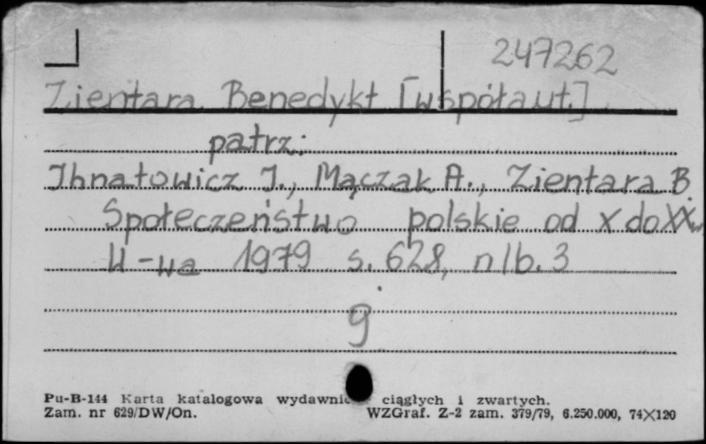 247262
Zientara Benedykt [współaut.]
patrz:
Ihnatowicz I., Mączak A., Zientara B.
Społeczeństwo polskie od X do XX w.
W-wa 1979 s. 628, nlb. 3
g
Pu-B-144 Karta katalogowa wydawnic ciągłych i zwartych.
Zam. nr 629/DW/On. WZGraf. Z-2 zam. 379/79, 6.250.000, 74X120